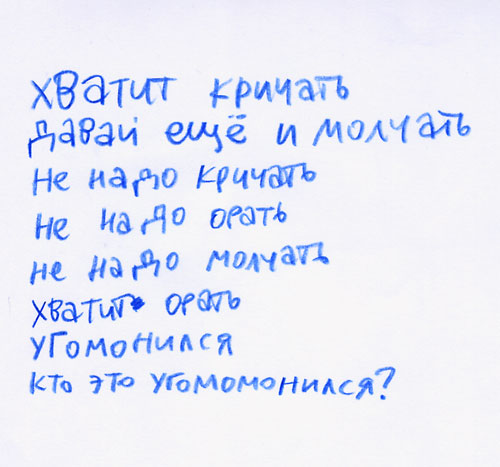 хватит кричать
давай ещё и молчать
не надо кричать
не надо орать
не надо молчать
хватит орать
угомонился
кто это угомомонился?